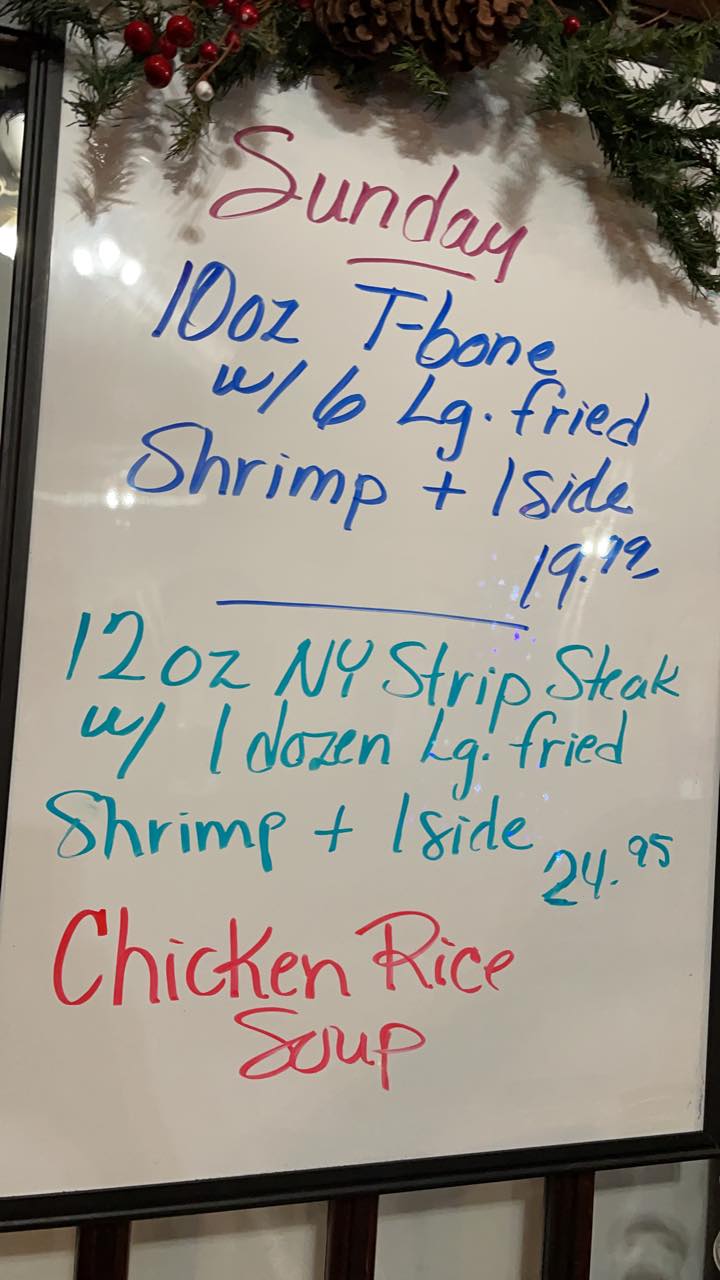 Sunday
10oz T-bone
w/ 6 Lg. fried
Shrimp + 1 side
19.99
12oz NY Strip Steak
w/ 1 dozen Lg. fried
Shrimp + 1 side
24.95
Chicken Rice
Soup